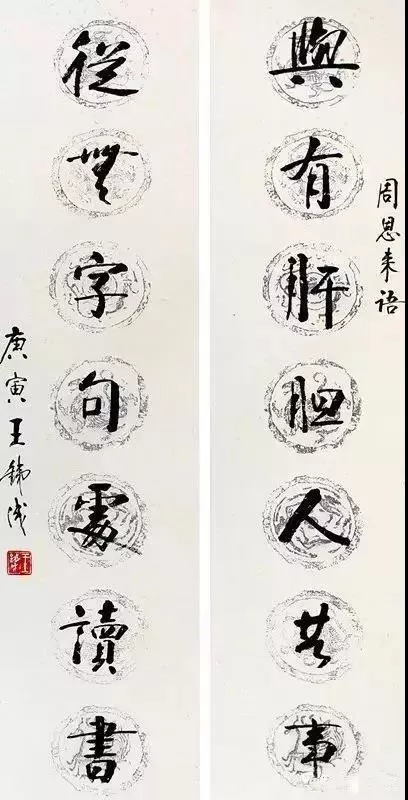 周恩来语
與有肝膽人共事
從無字句處讀書
庚寅王